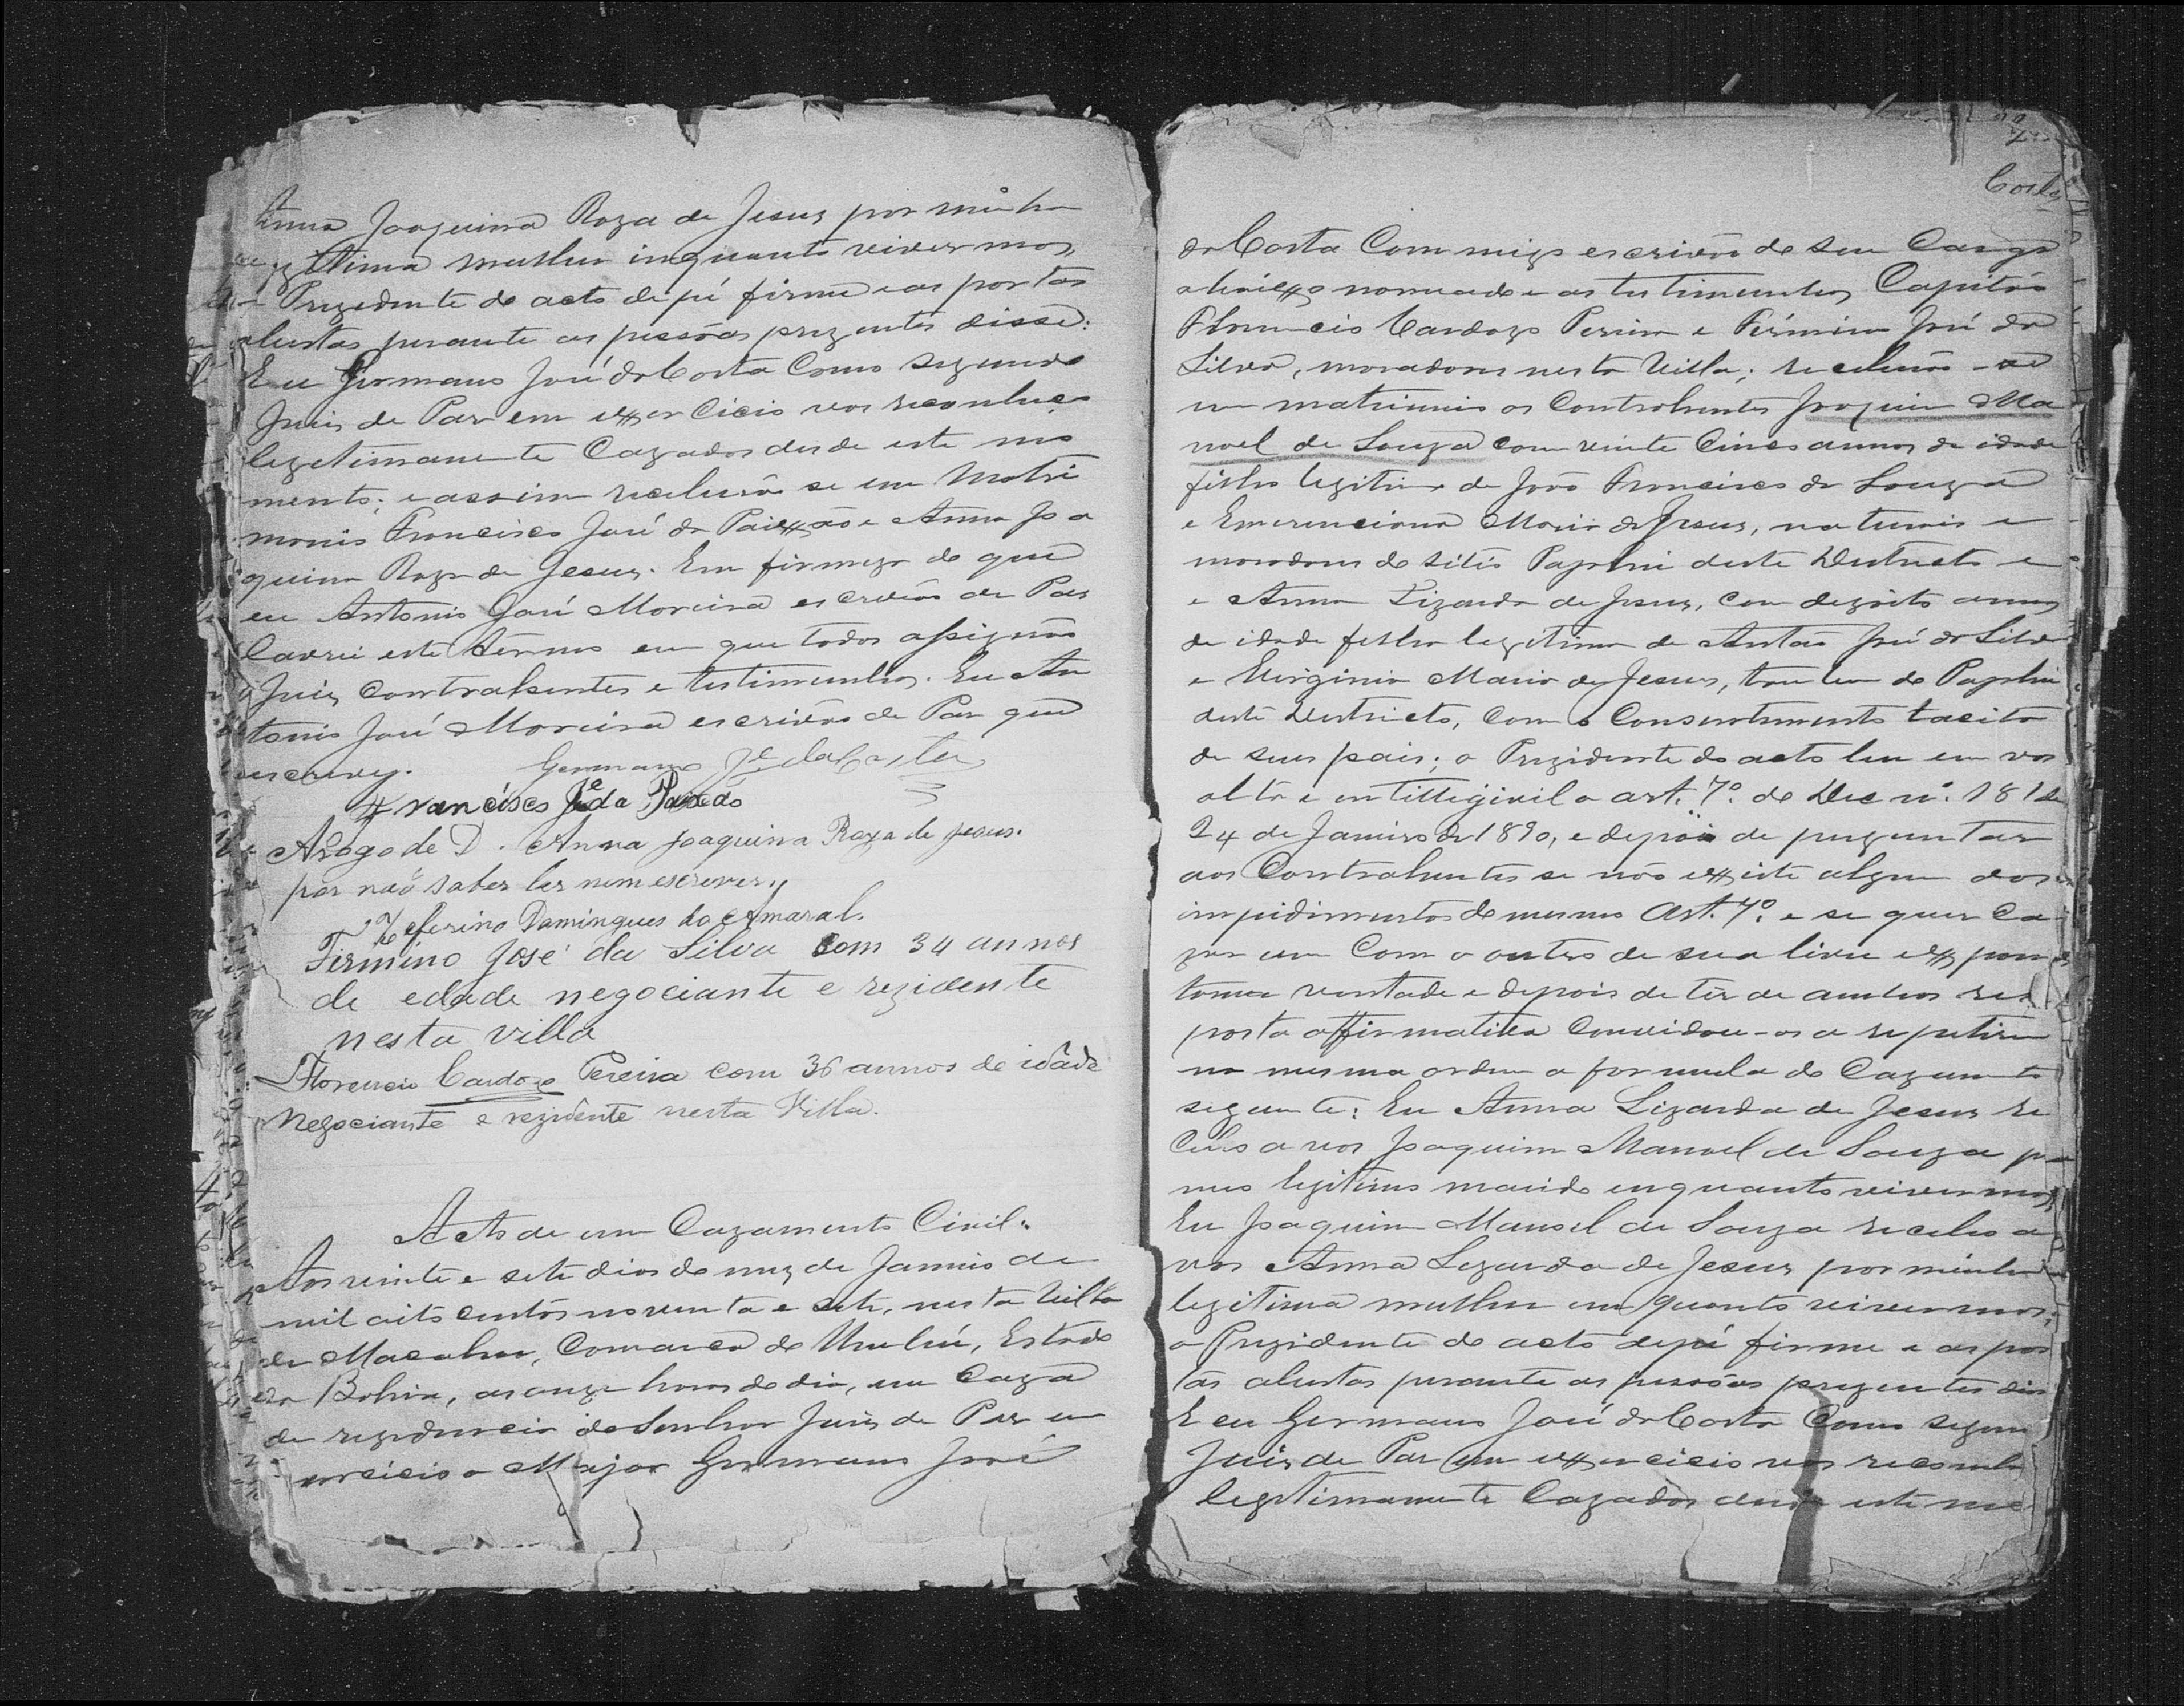 Anna Joaquina Roza de Jesus por minha
legitima mulher inquanto vivermos,
o Prezidente do acto de pé firme e as portas
abertas perante as pessôas prezentes disse:
E eu Germano José da Costa Como segundo
Juis de Paz em exercicio vos reconheço
legetimamente Cazados desde este mo
mento; e assim receberão se em Matri
monio Francisco José da Paixão e Anna Joa
quina Roza de Jesus. Em firmeza do que
eu Antonio José Moreira escrivão de Paz
lavrei este têrmo em que todos assignão
Juis, Contrahentes e testimunhas. Eu An
tonio José Moreira escrivão de Paz que
escrevy.
Germano Jé da Costa
Francisco Jé da Paixão
A Rogo de D. Anna Joaquina Roza de Jesus.
por naõ saber ler nem escrever,
Zeferino Domingues do Amaral.
Firmino José da Silva Com 34 annos
de edade negociante e rezidente
nesta villa
Florencio Cardozo Pereira com 36 annos de idade
Negociante e rezidente nesta Villa.
Acto de um Cazamento Civil.
Aos vinte e sete dias do mez de Janeiro de
mil oito centos noventa e sete, nesta Villa
de Macahu, Comarca de Urubú, Estado
da Bahia, as onze horas do dia, em Caza
de rezidencia do Senhor Juis de Paz em
exercicio o Major Germano José
Costa
da Costa Commigo escrivão de seu Cargo
abaixo nomeado e as testimunhas Capitão
Florencio Cardozo Pereira e Firmino José da
Silva, moradores nesta Villa; receberão-se
em matrimonio os Contrahentes Joaquim Ma
noel de Souza com vinte Cinco annos de idade
filho legitimo de João Francisco de Souza
e Emerenciana Maria de Jesus, naturais e
moradores do sitio deste Destricto e
e Anna Lizarda de Jesus, com dezoito annos
de idade filha legítima de Antão José da Silva
e Virginia Maria de Jesus, tambem do
deste Destricto, com o Consentimento tacito
de seus pais; o Prezidente do acto leu em vos
alta e intilligivil o art. 7º. do Dec nº. 181 de
24 de Janeiro de 1890, e depois de preguntar
aos Contrahentes se não existe algum dos
impidimentos do mesmo Art. 7º. e se quer Ca
zar um Com o outro de sua livre e expon
tania vontade e depois de ter de ambos res
posta affirmativa Convidou-os a repetirem
na mesma ordem a formula do Cazamento
seguinte: Eu Anna Lizarda de Jesus re
cebo a vos Joaquim Manoel de Souza por
meu legitimo marido enquanto vivermos,
Eu Joaquim Manoel de Souza recebo a
vos Anna Lizarda de Jesus por minha
legitima mulher em quanto vivermos;
o Prezidente do acto de pé firme e as por
tas abertas perante as pessôas prezentes diss
E eu Germano José da Costa Como segun
Juis de Paz em exercicio vos reconhe
legitimamente Cazados desde este mo